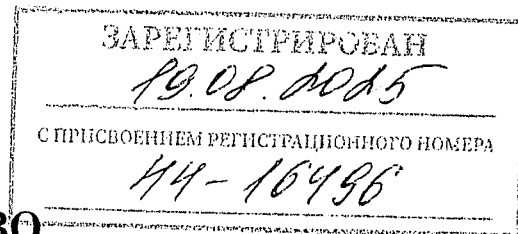 ЗАРЕГИСТРИРОВАН
19.08.2025
С ПРИСВОЕНИЕМ РЕГИСТРАЦИОННОГО НОМЕРА
44-16496
ВО